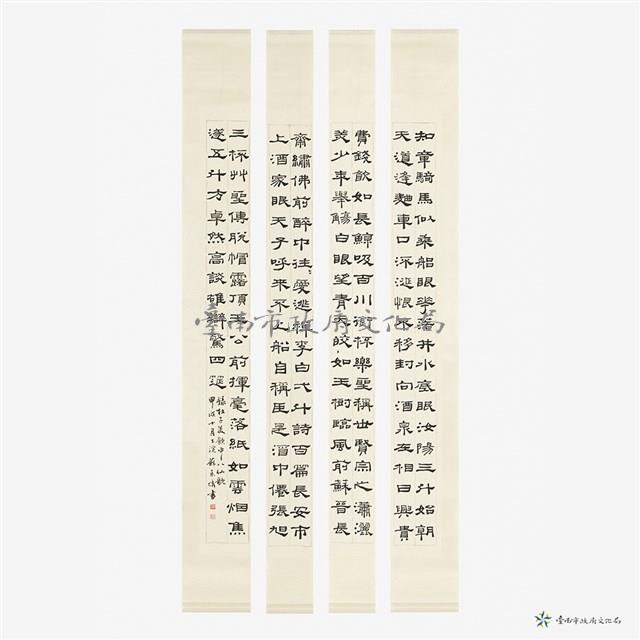 知章騎馬似乘船眼花落井水底眠汝陽三斗始朝
天道逢麴車口流涎恨不移封向酒泉左相日興費
萬錢飲如長鯨吸百川銜杯樂聖稱世賢宗之瀟灑
美少年舉觴白眼望青天皎々如玉樹臨風前蘇晉長
齋繡佛前醉中往々愛逃禪李白弌斗詩百篇長安市
上酒家眠天子呼來不上船自稱臣是酒中僊張旭
三杯艸聖傳脫帽露頂王公前揮毫落紙如雲烟焦
遂五斗方卓然高談雄辯驚四筵
錄杜子美飲中八仙歌
甲戌十月上浣 書
臺南市政府文化局
臺南市政府文化局